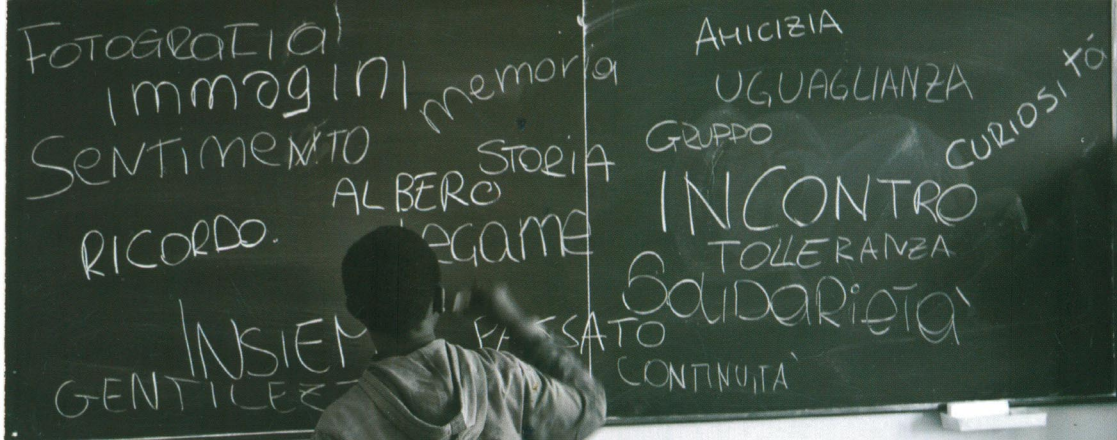 FOTOGRAFIA
immagini
memoria
SENTIMENTO
STORIA
ALBERO
RICORDO.
Legame
INSIEM
PASSATO
GENTILEZ
AMICIZIA
UGUAGLIANZA
CURIOSITÁ
GRUPPO
INCONTRO
TOLLERANZA
SOLIDARIETÀ
CONTINUITÀ